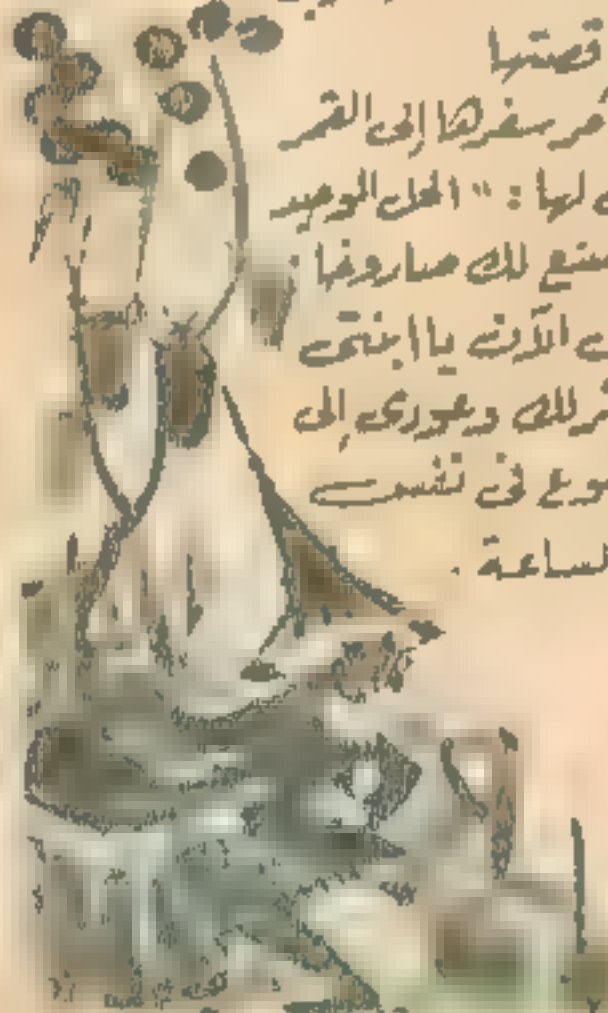 قصتها
سفرها إلى القمر
لها : " الحل الوحيد
لك صاروخا
الآن يا ابنتى
وعودى إلى
فى نفس
الساعة .